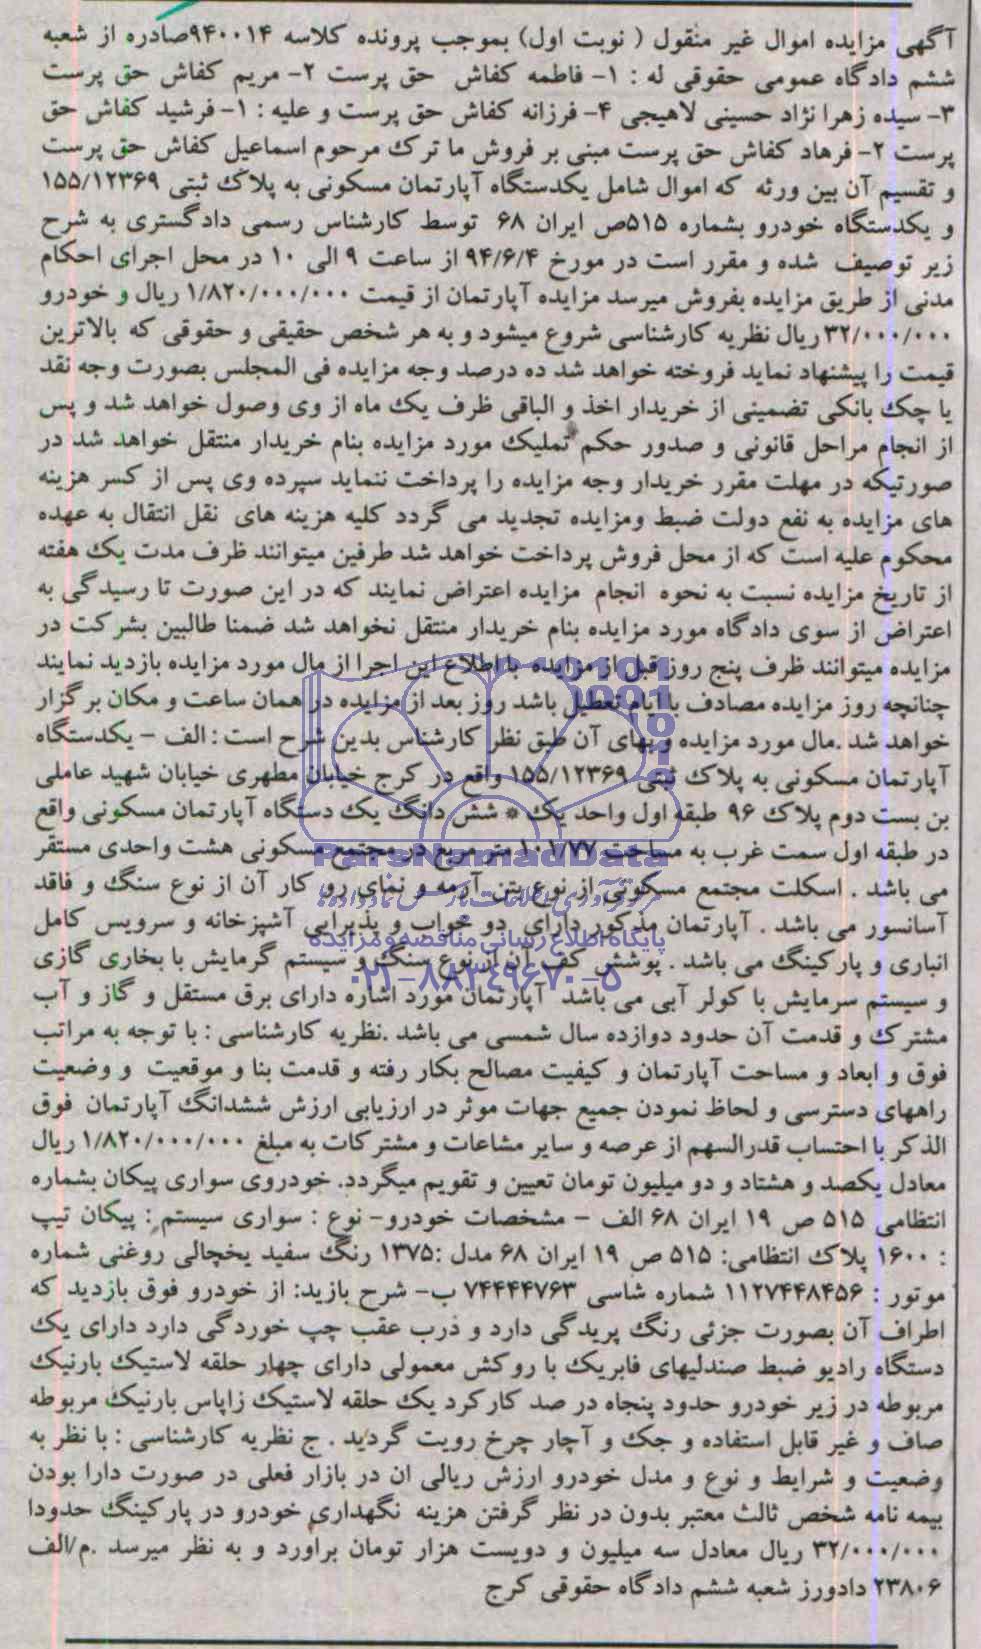 آگهی مزایده اموال غیر منقول ( نوبت اول) بموجب پرونده کلاسه ۹۴۰۰۱۴صادره از شعبه
ششم دادگاه عمومی حقوقی له : ۱- فاطمه کفاش حق پرست ۲- مریم کفاش حق پرست
۳- سیده زهرا نژاد حسینی لاهیجی ۴- فرزانه کفاش حق پرست و علیه : ۱- فرشید کفاش حق
پرست ۲- فرهاد کفاش حق پرست مبنی بر فروش ما ترک مرحوم اسماعیل کفاش حق پرست
و تقسیم آن بین ورثه که اموال شامل یکدستگاه آپارتمان مسکونی به پلاک ثبتی ۱۵۵/۱۲۳۶۹
و یکدستگاه خودرو بشماره ۵۱۵ص ایران ۶۸ توسط کارشناس رسمی دادگستری به شرح
زیر توصیف شده و مقرر است در مورخ ۹۴/۶/۴ از ساعت ۹ الی ۱۰ در محل اجرای احکام
مدنی از طریق مزایده بفروش میرسد مزایده آپارتمان از قیمت ۱/۸۲۰/۰۰۰/۰۰۰ ریال و خودرو
۳۲/۰۰۰/۰۰۰ ریال نظریه کارشناسی شروع میشود و به هر شخص حقیقی و حقوقی که بالاترین
قیمت را پیشنهاد نماید فروخته خواهد شد ده درصد وجه مزایده فی المجلس بصورت وجه نقد
یا چک بانکی تضمینی از خریدار اخذ و الباقی ظرف یک ماه از وی وصول خواهد شد و پس
از انجام مراحل قانونی و صدور حکم تملیک مورد مزایده بنام خریدار منتقل خواهد شد در
صورتیکه در مهلت مقرر خریدار وجه مزایده را پرداخت ننماید سپرده وی پس از کسر هزینه
های مزایده به نفع دولت ضبط ومزایده تجدید می گردد کلیه هزینه های نقل انتقال به عهده
محکوم علیه است که از محل فروش پرداخت خواهد شد طرفین میتوانند ظرف مدت یک هفته
از تاریخ مزایده نسبت به نحوه انجام مزایده اعتراض نمایند که در این صورت تا رسیدگی به
اعتراض از سوی دادگاه مورد مزایده بنام خریدار منتقل نخواهد شد ضمنا طالبین بشرکت در
مزایده میتوانند ظرف پنج روز قبل از مزایده با اطلاع این اجرا از مال مورد مزایده بازدید نمایند
چنانچه روز مزایده مصادف با ایام تعطیل باشد روز بعد از مزایده در همان ساعت و مکان برگزار
خواهد شد .مال مورد مزایده و بهای آن طبق نظر کارشناس بدین شرح است : الف - یکدستگاه
آپارتمان مسکونی به پلاک ثبتی ۱۵۵/۱۲۳۶۹ واقع در کرج خیابان مطهری خیابان شهید عاملی
بن بست دوم پلاک ۹۶ طبقه اول واحد یک * شش دانگ یک دستگاه آپارتمان مسکونی واقع
در طبقه اول سمت غرب به مساحت ۱۰۱/۷۷ متر مربع در مجتمع مسکونی هشت واحدی مستقر
ParsNamadData
می باشد . اسکلت مجتمع مسکونی از نوع بتن آرمه و نمای رو کار آن از نوع سنگ و فاقد
آسانسور می باشد . آپارتمان مذکور دارای دو خواب و پذیرایی آشپزخانه و سرویس کامل
پایگاه اطلاع رسانی مناقصه و مزایده
انباری و پارکینگ می باشد . پوشش کف آن از نوع سنگ و سیستم گرمایش با بخاری گازی
۰۲۱-۸۸۳۴۹۶۷۰-۵
و سیستم سرمایش با کولر آبی می باشد آپارتمان مورد اشاره دارای برق مستقل و گاز و آب
مشترک و قدمت آن حدود دوازده سال شمسی می باشد .نظریه کارشناسی : با توجه به مراتب
فوق و ابعاد و مساحت آپارتمان و کیفیت مصالح بکار رفته و قدمت بنا و موقعیت و وضعیت
راههای دسترسی و لحاظ نمودن جمیع جهات موثر در ارزیابی ارزش ششدانگ آپارتمان فوق
الذکر با احتساب قدرالسهم از عرصه و سایر مشاعات و مشترکات به مبلغ ۱/۸۲۰/۰۰۰/۰۰۰ ریال
معادل یکصد و هشتاد و دو میلیون تومان تعیین و تقویم میگردد. خودروی سواری پیکان بشماره
انتظامی ۵۱۵ ص ۱۹ ایران ۶۸ الف - مشخصات خودرو- نوع : سواری سیستم : پیکان تیپ
: ۱۶۰۰ پلاک انتظامی: ۵۱۵ ص ۱۹ ایران ۶۸ مدل :۱۳۷۵ رنگ سفید یخچالی روغنی شماره
موتور : ۱۱۲۷۴۴۸۴۵۶ شماره شاسی ۷۴۴۴۴۷۶۳ ب- شرح بازید: از خودرو فوق بازدید که
اطراف آن بصورت جزئی رنگ پریدگی دارد و درب عقب چپ خوردگی دارد دارای یک
دستگاه رادیو ضبط صندلیهای فابریک با روکش معمولی دارای چهار حلقه لاستیک بارنیک
مربوطه در زیر خودرو حدود پنجاه در صد کارکرد یک حلقه لاستیک زاپاس بارنیک مربوطه
صاف و غیر قابل استفاده و جک و آچار چرخ رویت گردید . ج نظریه کارشناسی : با نظر به
وضعیت و شرایط و نوع و مدل خودرو ارزش ریالی ان در بازار فعلی در صورت دارا بودن
بیمه نامه شخص ثالث معتبر بدون در نظر گرفتن هزینه نگهداری خودرو در پارکینگ حدودا
۳۲/۰۰۰/۰۰۰ ریال معادل سه میلیون و دویست هزار تومان براورد و به نظر میرسد .م/الف
۲۳۸۰۶ دادورز شعبه ششم دادگاه حقوقی کرج